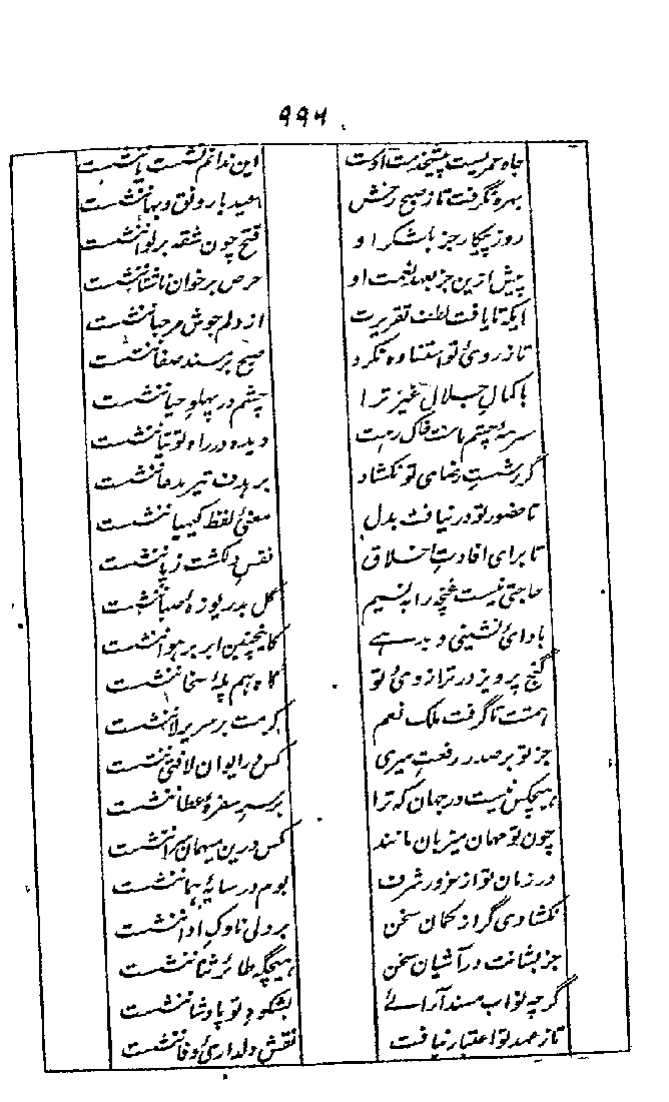 ۹۹۴
جاه حمریست پیشخدمت اوست این ندانم نشست یا ننشست
بهره نگرفت تا ز صبح رخش عید با رونق و بها ننشست
روز پیکار جز باشکر او فتح چون شقه بر لوا ننشست
پیش ازین جز بعهد نعمت او حرص بر خوان ناشتا ننشست
ایکه تا یافت لطف تقریرت از دلم جوش مرحبا ننشست
تا ز روی تو استفاده نکرد صبح بر مسند صفا ننشست
با کمال جلال غیر ترا چشم در پهلو حیا ننشست
سرمهٔ چشم ماست خاک رهت دیده در راه توتیا ننشست
گر بشست رضای تو نکشاد بر هدف تیر مدعا ننشست
تا حضور تو در نیافت بدل معنی لفظ کیمیا ننشست
تا برای افادت اخلاق نقس دلکشت ز پا ننشست
حاجتی نیست غنچه را به نسیم گل بدریوزهٔ صبا ننشست
با دائ نشینی و بدرهے کاینچنین ابر بر هوا ننشست
گنج پرویز در ترازوی تو گاه هم پلهٔ سخا ننشست
همتت تا گرفت ملک نعم کرمت بر سریر لا ننشست
جز تو بر صدر رفعت میری کس در ایوان لافتی ننشست
هیچکس نیست در جهان که ترا بر سر سفرهٔ عطا ننشست
چون تو مهمان میزبان مانند کس درین میهمان سرا ننشست
در زمان تو از غرور شرف بوم در سایهٔ هما ننشست
نکشادی گر از کمان سخن بر دلی ناوک ادا ننشست
جز بشانت در آشیان سخن هیچگه طائر ثنا ننشست
گرچه نواب مسند آرائے بشکوه تو پادشا ننشست
تا ز عهد تو اعتبار نیافت نقش دلداری وفا ننشست